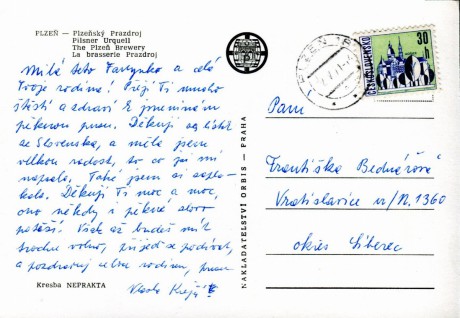 PLZEŇ — Plzeňský Prazdroj
Pilsner Urquell
The Plzeň Brewery
La brasserie Prazdroj
Milá teto Fanynko a celá
Tvoje rodino! Přeji Ti mnoho
štěstí a zdraví k jmeninám
pěknou pusu. Děkuji za lístek
ze Slovenska, a měla jsem
velkou radost, to co jsi mi
napsala. Také jsem si zapla-
kala. Děkuji Ti moc a moc,
ono někdy i pěkné slovo
potěší! Však až budeš mít
trochu volno, přijeď se podívat,
a pozdravuj celou rodinu,
Vlasta
Kresba NEPRAKTA
NAKLADATELSTVÍ ORBIS — PRAHA
PLZEŇ
ČESKOSLOVENSKO
30 h
Paní
Františka Bednářová
Vratislavice n/N. 1360
okres Liberec